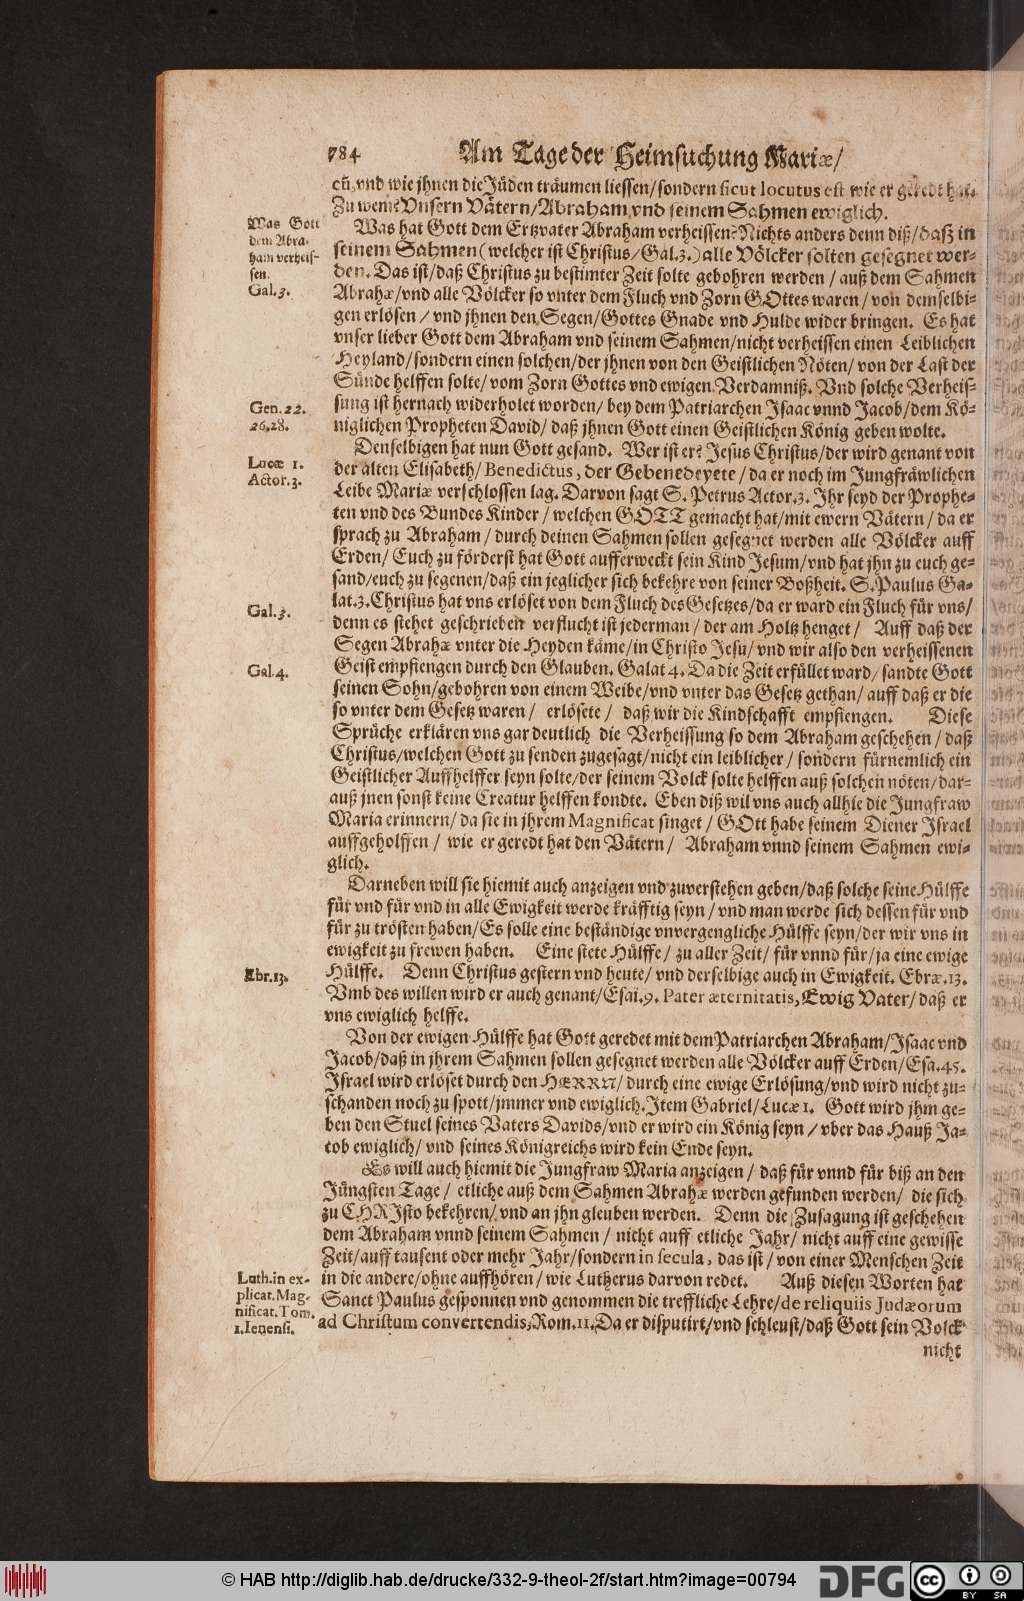 784 Am Tage der Heimsuchung Mariæ/
cū, vnd wie jhnen die Jüden träumen liessen/sondern sicut locutus est wie er geredt hat.
Zu wem? Vnsern Vätern/Abraham vnd seinem Sahmen ewiglich.
Was Gott
dem Abra-
ham verheis-
sen.
Gal.3.
Was hat Gott dem Ertzvater Abraham verheissen? Nichts anders denn diß/daß in
seinem Sahmen (welcher ist Christus/Gal.3.) alle Völcker solten gesegnet wer-
den. Das ist/daß Christus zu bestimter Zeit solte gebohren werden / auß dem Sahmen
Abrahæ/vnd alle Völcker so vnter dem Fluch vnd Zorn GOttes waren / von demselbi-
gen erlösen / vnd jhnen den Segen/Gottes Gnade vnd Hulde wider bringen. Es hat
vnser lieber Gott dem Abraham vnd seinem Sahmen/nicht verheissen einen Leiblichen
Heyland/sondern einen solchen/der jhnen von den Geistlichen Nöten/ von der Last der
Sünde helffen solte/ vom Zorn Gottes vnd ewigen Verdamniß. Vnd solche Verheis-
Gen.22.
26.28.
sung ist hernach widerholet worden/ bey dem Patriarchen Isaac vnnd Jacob/dem Kö-
niglichen Propheten David/ daß jhnen Gott einen Geistlichen König geben wolte.
Denselbigen hat nun Gott gesand. Wer ist er? Jesus Christus/der wird genant von
Lucæ 1.
Actor.3.
der alten Elisabeth/Benedictus, der Gebenedeyete / da er noch im Jungfräwlichen
Leibe Mariæ verschlossen lag. Darvon sagt S. Petrus Actor.3. Ihr seyd der Prophe-
ten vnd des Bundes Kinder / welchen GOTT gemacht hat/mit ewern Vätern / da er
sprach zu Abraham / durch deinen Sahmen sollen gesegnet werden alle Völcker auff
Erden/ Euch zu förderst hat Gott aufferweckt sein Kind Jesum/vnd hat jhn zu euch ge-
sand/euch zu segenen/daß ein jeglicher sich bekehre von seiner Boßheit. S. Paulus Ga-
Gal.3.
lat.3. Christus hat vns erlöset von dem Fluch des Gesetzes/da er ward ein Fluch für vns/
denn es stehet geschrieben verflucht ist jederman / der am Holtz henget / Auff daß der
Segen Abrahæ vnter die Heyden käme/in Christo Jesu/ vnd wir also den verheissenen
Gal.4.
Geist empfiengen durch den Glauben. Galat 4. Da die Zeit erfüllet ward/ sandte Gott
seinen Sohn/gebohren von einem Weibe/vnd vnter das Gesetz gethan/ auff daß er die
so vnter dem Gesetz waren / erlösete / daß wir die Kindschafft empfiengen. Diese
Sprüche erklären vns gar deutlich die Verheissung so dem Abraham geschehen / daß
Christus/welchen Gott zu senden zugesagt/nicht ein leiblicher / sondern fürnemlich ein
Geistlicher Auffhelffer seyn solte/der seinem Volck solte helffen auß solchen nöten/ dar-
auß jnen sonst keine Creatur helffen kondte. Eben diß wil vns auch allhie die Jungfraw
Maria erinnern/ da sie in jhrem Magnificat singet / GOtt habe seinem Diener Israel
auffgeholffen / wie er geredt hat den Vätern / Abraham vnnd seinem Sahmen ewi-
glich.
Darneben will sie hiemit auch anzeigen vnd zuverstehen geben/daß solche seine Hülffe
für vnd für vnd in alle Ewigkeit werde kräfftig seyn / vnd man werde sich dessen für vnd
für zu trösten haben/Es solle eine beständige vnvergengliche Hülffe seyn/der wir vns in
ewigkeit zu frewen haben. Eine stete Hülffe/ zu aller Zeit/ für vnnd für/ja eine ewige
Ebr.13.
Hülffe. Denn Christus gestern vnd heute/ vnd derselbige auch in Ewigkeit. Ebræ.13.
Vmb des willen wird er auch genant/Esai.9. Pater æternitatis, Ewig Vater/ daß er
vns ewiglich helffe.
Von der ewigen Hülffe hat Gott geredet mit dem Patriarchen Abraham/Isaac vnd
Jacob/daß in jhrem Sahmen sollen gesegnet werden alle Völcker auff Erden/Esa.45.
Israel wird erlöset durch den HERRN/ durch eine ewige Erlösung/vnd wird nicht zu-
schanden noch zu spott/jmmer vnd ewiglich. Item Gabriel/Lucæ 1. Gott wird jhm ge-
ben den Stuel seines Vaters Davids/vnd er wird ein König seyn / vber das Hauß Ja-
cob ewiglich/ vnd seines Königreichs wird kein Ende seyn.
Es will auch hiemit die Jungfraw Maria anzeigen / daß für vnnd für biß an den
Jüngsten Tage / etliche auß dem Sahmen Abrahæ werden gefunden werden/ die sich
zu CHRIsto bekehren/ vnd an jhn gleuben werden. Denn die Zusagung ist geschehen
dem Abraham vnnd seinem Sahmen / nicht auff etliche Jahr/ nicht auff eine gewisse
Zeit/auff tausent oder mehr Jahr/sondern in secula, das ist / von einer Menschen Zeit
Luth.in ex-
plicat.Mag-
nificat.Tom.
1.Ienensi.
in die andere/ohne auffhören / wie Lutherus darvon redet. Auß diesen Worten hat
Sanct Paulus gesponnen vnd genommen die treffliche Lehre/de reliquiis Judæorum
ad Christum convertendis, Rom.11. Da er disputirt/vnd schleust/daß Gott sein Volck
nicht
© HAB http://diglib.hab.de/drucke/332-9-theol-2f/start.htm?image=00794
DFG
cc BY SA